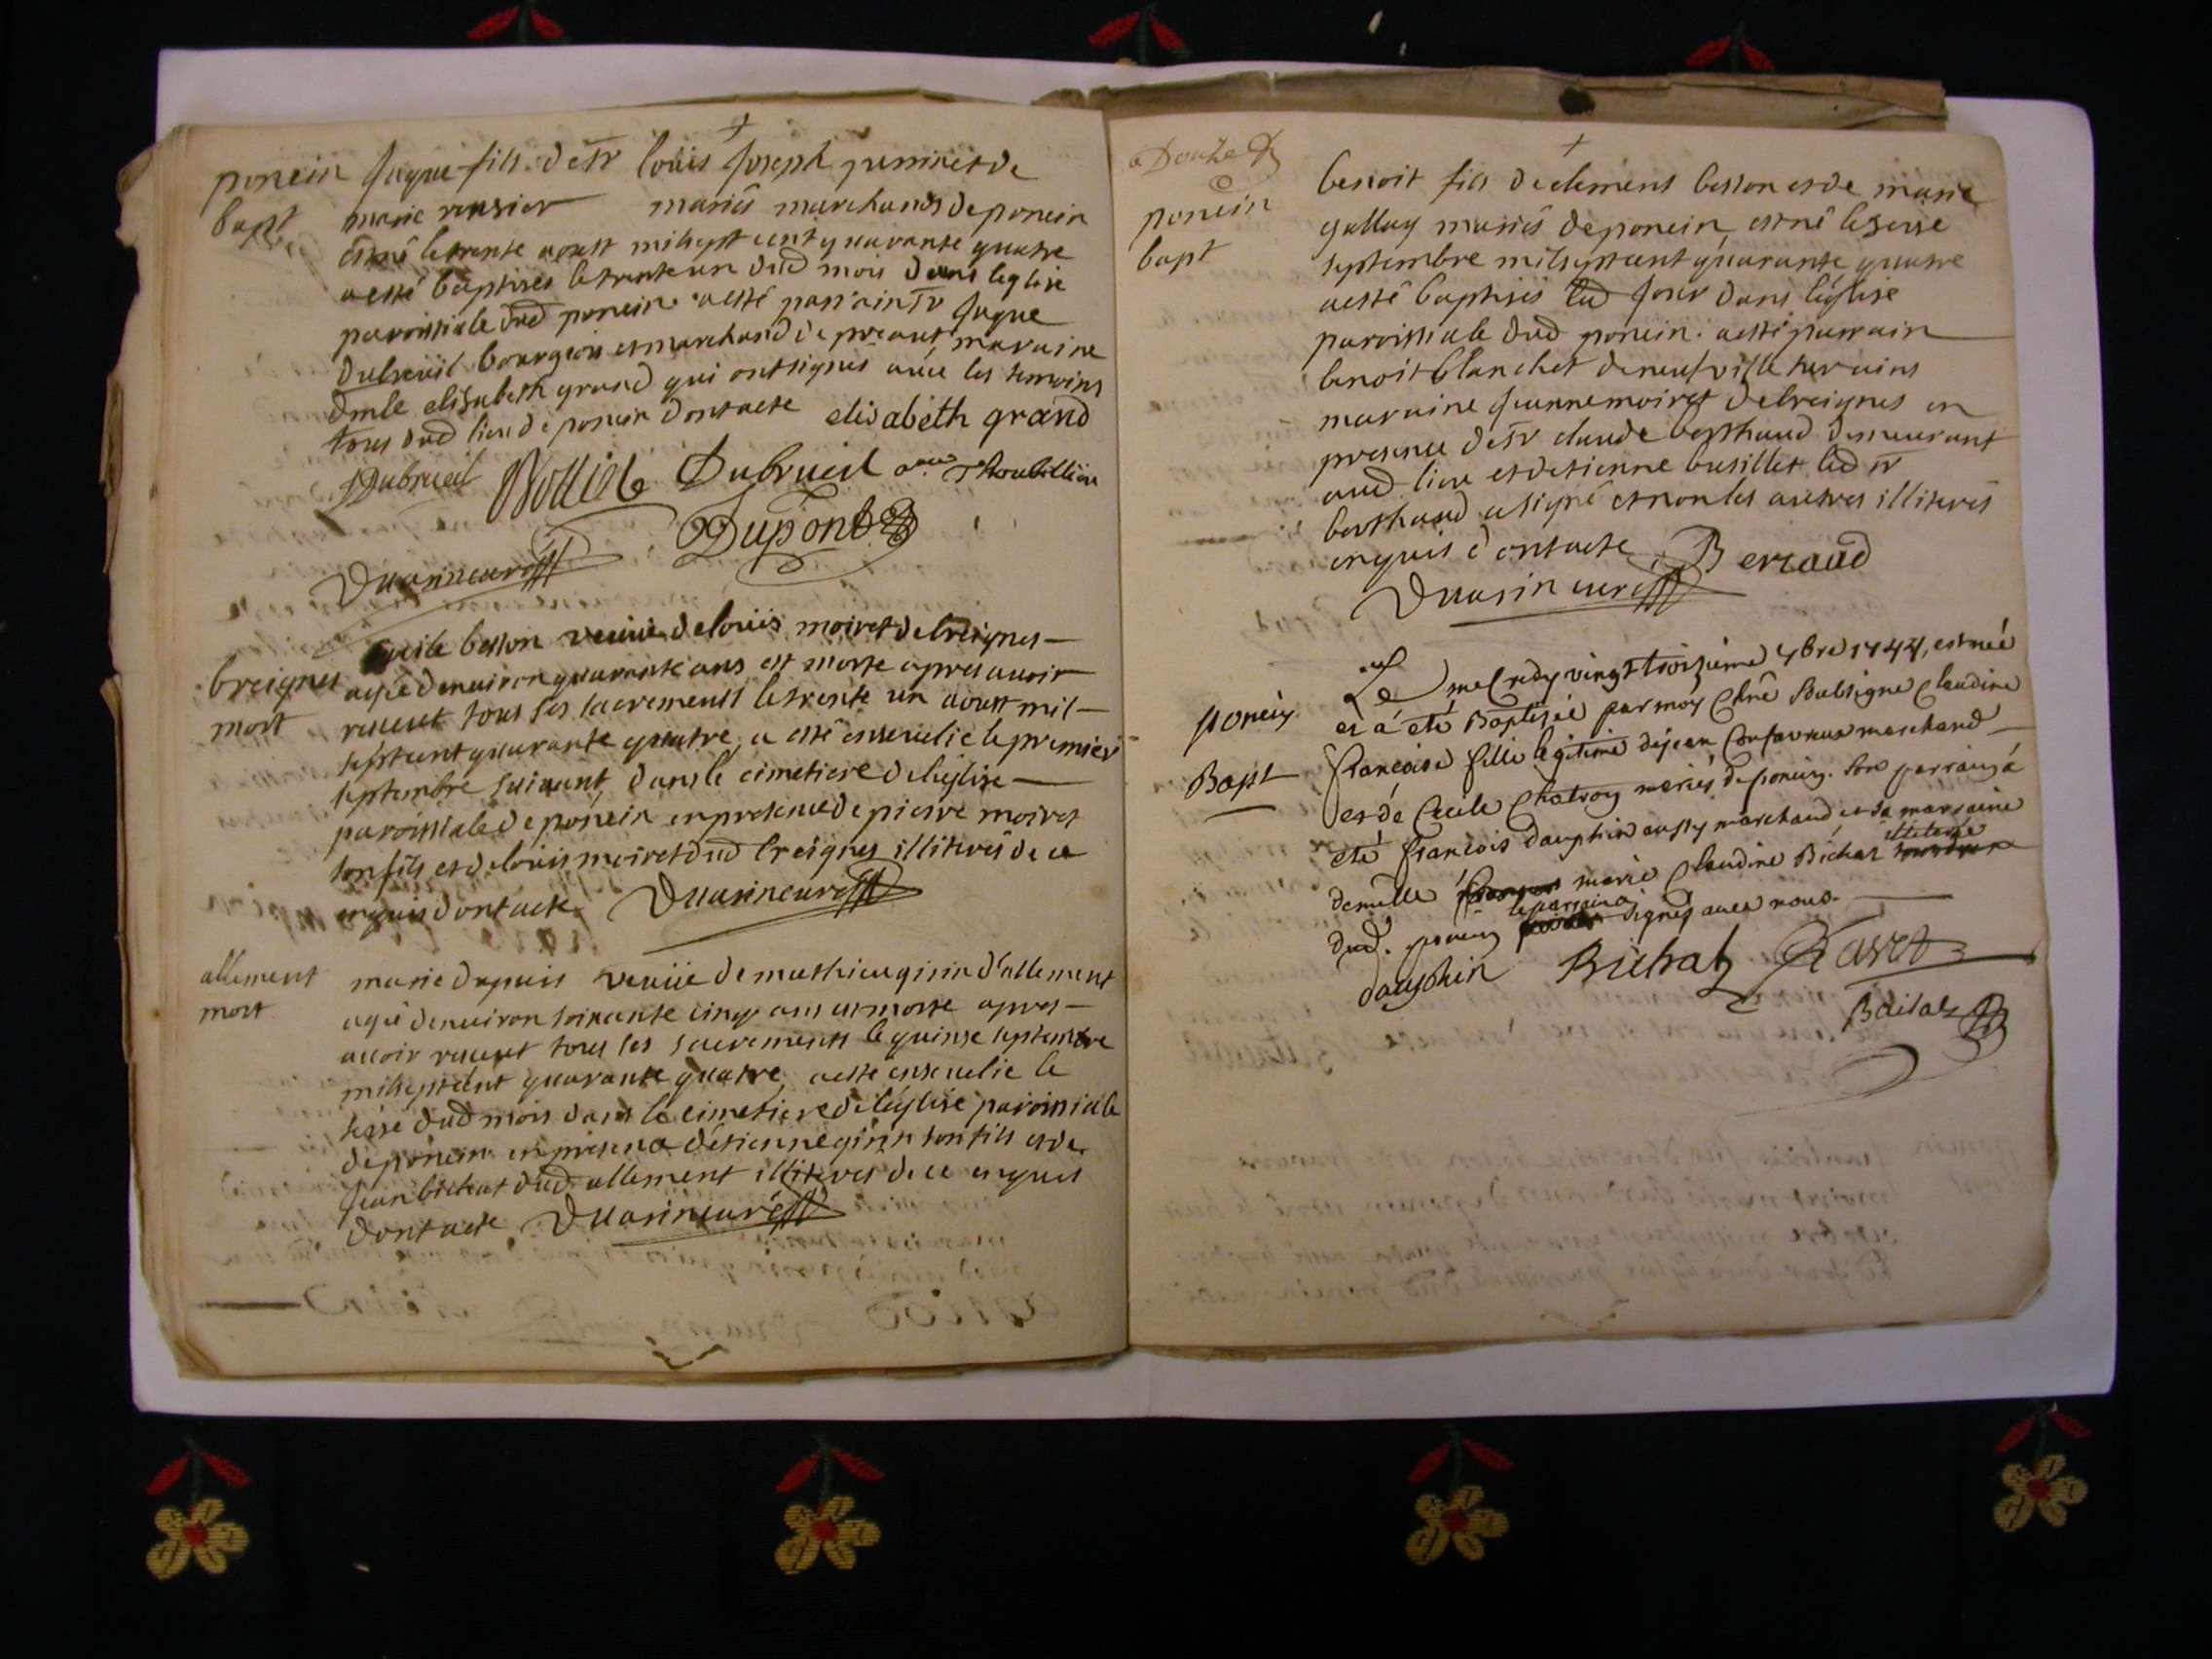 +
ponein Jaque fils de sr louis Joseph et de
bapt marie mariés marchands de ponein
est né le trente aoust mil sept cent quarante quatre
a esté baptisés le trente un dud mois dans leglise
paroissiale dud ponein. a esté parrain sr Jaque
dubreüil bourgeois et marchand de maraine
dmle elisabeth grand qui ont signés avec les temoins
tous dud lieu de ponein dont acte elisabeth grand
Dubrueil Dubrueil
Dupont
breignes besson veuüe de loüis moiret de breignes
mort agée d'environ quarante ans est morte apres avoir
receut tous les sacrements le trente un aoust mil
sept cent quarante quatre, a esté ensevelie le premier
septembre suivant, dans le cimetiere de leglise
paroissiale de ponein en presence de pierre moiret
son fils et de loüis moiret dud breignes illiterés de ce
enquis dont acte
allement marie dupuis veuüe de mathieu girin d'allement
mort agée d'environ soixante cinq ans est morte apres
avoir receut tous les sacrements le quinse septembre
mil sept cent quarante quatre, a esté ensevelie le
dud mois dans le cimetiere de leglise paroissiale
de ponein en presence d'etienne girin son fils et de
Jean bichat dud allement illiterés de ce enquis
dont acte
Douze
+
ponein benoit fils de clément besson et de marie
bapt gallay mariés de ponein, est né le
septembre mil sept cent quarante quatre
a esté baptisés led jour dans léglise
paroissiale dud ponein. a esté parrain
benoit blanchet de neufville
maraine Jeanne moiret de breignes en
presence de sr claude berthaud demeurant
aud lieu et d'etienne busillet led sr
berthaud a signé et non les autres illiterés
enquis dont acte Bertaud
ponein Le mecredy vingt troizieme 7bre 1744, est née
Bapt et a été Baptisée par moy soubsigné Claudine
francoise fille legitime de jean marchand
et de Cecile Chatron mariés de ponein. son parrain a
été francois dauphin aussy marchand et sa marraine
demlle marie Claudine Bichat illiterée
dud. ponein le parrain signés avec nous.
dauphin Bichat